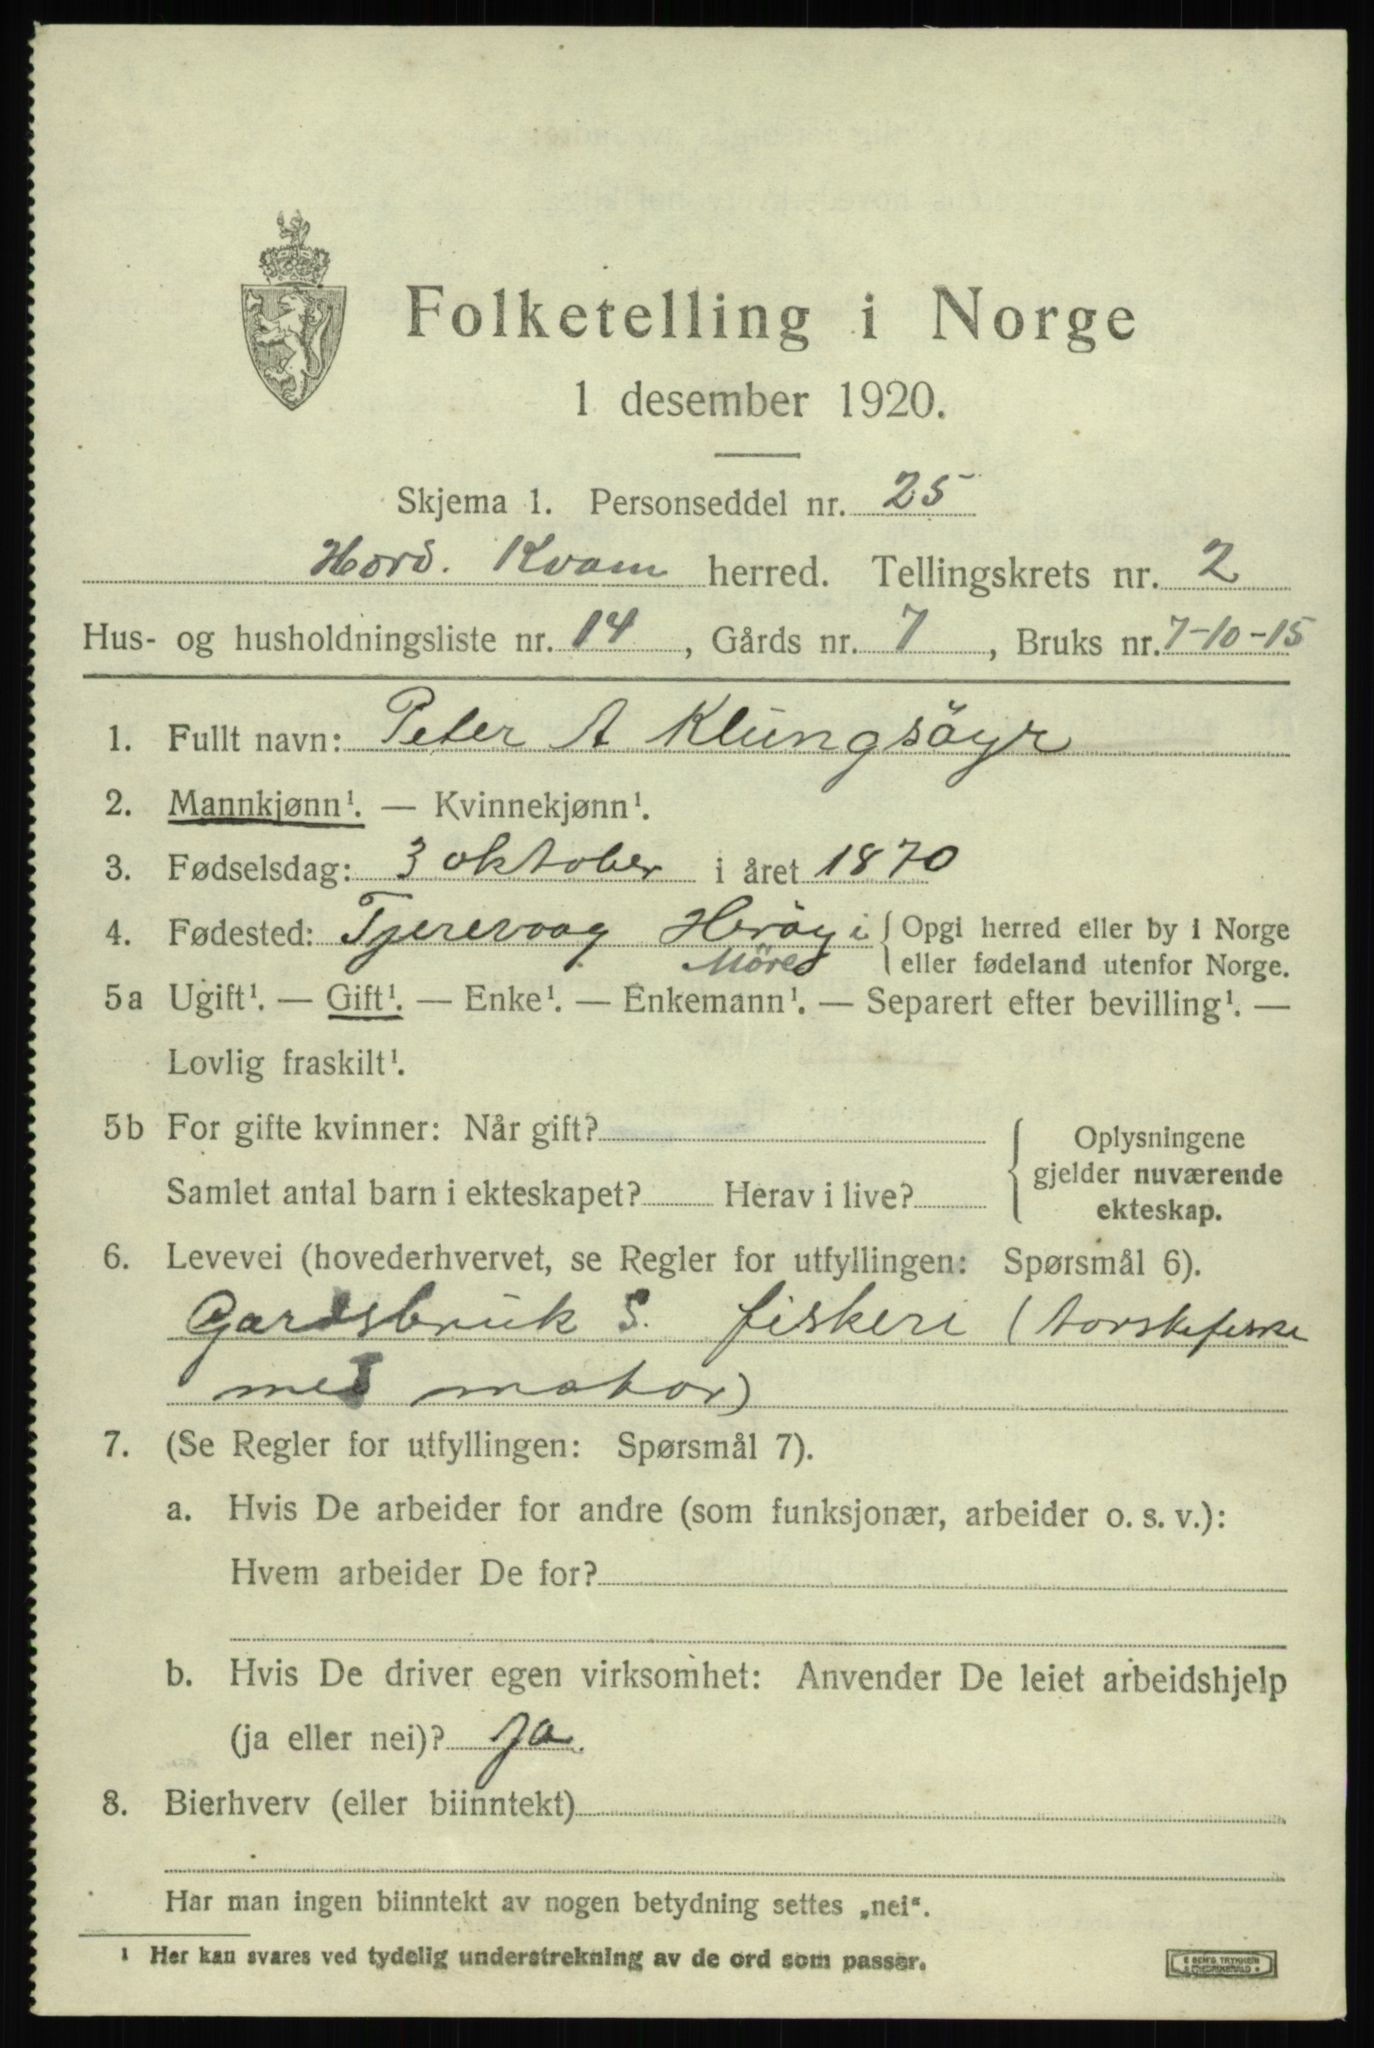 Folketelling i Norge
1 desember 1920.
Skjema 1. Personseddel nr. 25
Hord. Kvam herred. Tellingskrets nr. 2
Hus- og husholdningsliste nr. 14, Gårds nr. 7, Bruks nr. 7-10-15
1. Fullt navn: Peter A Klungsöyr
2. Mannkjønn¹. — Kvinnekjønn¹.
3. Fødselsdag: 3 oktober i året 1870
4. Fødested: Tjerevaag Heröy i { Opgi herred eller by i Norge
Möre { eller fødeland utenfor Norge.
5a Ugift¹. — Gift¹. — Enke¹. — Enkemann¹. — Separert efter bevilling¹. —
Lovlig fraskilt¹.
5b For gifte kvinner: Når gift?
Oplysningene
gjelder nuværende
ekteskap.
Samlet antal barn i ekteskapet? Herav i live?
6. Levevei (hovederhvervet, se Regler for utfyllingen: Spørsmål 6).
Gardsbruk S. fiskeri (torskefiske
med motor)
7. (Se Regler for utfyllingen: Spørsmål 7).
a. Hvis De arbeider for andre (som funksjonær, arbeider o. s. v.):
Hvem arbeider De for?
b. Hvis De driver egen virksomhet: Anvender De leiet arbeidshjelp
(ja eller nei)? ja.
8. Bierhverv (eller biinntekt)
Har man ingen biinntekt av nogen betydning settes „nei“.
¹ Her kan svares ved tydelig understrekning av de ord som passer.